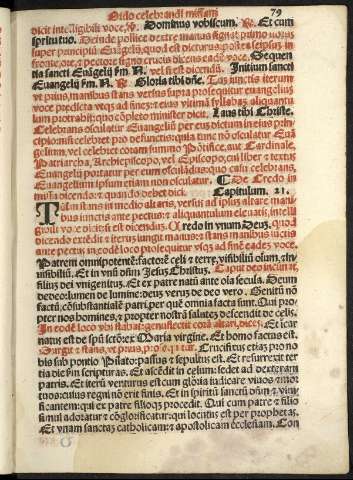 Ordo celebrandi missam 79
dicit intelligibili voce, v̄. Dominus vobiscum. R. Et cum
spiritu tuo. Deinde pollice dextre manus signat primo
super principiũ Evãgelij, quod est dicturus: postea seipsuȝ in
fronte, ore, ⁊ pectore signo crucis dicens eadē voce. Sequen
tia sancti Euãgelij f̄m. N. vel si est dicendũ. Initium sancti
Euangelij f̄m. N. R. Gloria tibi dñe. Tūc iunctis iterum
vt prius, manibus stans versus supra prosequitur euangelium
voce predicta vsqȝ ad finez: ⁊ eius vltimã syllabaȝ aliquantu
lum protrahit: quo cōpleto minister dicit. Laus tibi Christe.
Celebrans osculatur Euangeliũ per eum dictum in eius prin
cipio: nisi celebret pro defunctis: quia tunc nõ osculatur Euã
gelium, vel celebret coram summo Põtifice, aut Cardinale,
Patriarcha, Archiepiscopo, vel Episcopo, cui liber ⁊ textus
Euangelij portatur per eum osculãdus: quo casu celebrans,
Euangelium ipsum etiam non osculatur. ¶ De Credo in
missa dicendo: ⁊ quando debet dici. Capitulum. 21.
Tum stans in medio altaris, versus ad ipsus altare mani
bus iunctis ante pectus: ⁊ aliquantulum eleuatis, intelli
gibili voce dicit: si est dicendus. Credo in vnum Deuȝ, quod
dicendo extēdit ⁊ iterum iungit manus: ⁊ stans manibus iūctis
ante pectus in eodē loco prosequitur vsqȝ ad finē eadeȝ voce.
Patrem omnipotentē: factorē celi ⁊ terre, visibiliũ oĩum, ⁊ in
visibiliũ. Et in vnũ dñm Jesuȝ Christus. Caput deo inclinat,
filius dei vnigenitus. Et ex patre natũ ante oĩa secula. Deum
de deo: lumen de lumine: deuȝ veruȝ de deo vero. Genitũ nõ
factũ, cõsubstantialē patri, per quē omnia facta sunt. Qui pro
pter nos homines, ⁊ propter nostrã salutez descendit de celis.
In eodē loco vbi stabat: genuflectit corã altari, dicēs. Et icar
natus est de spũ sctõ ex Maria virgine. Et homo factus est.
Surgit ⁊ stans, vt prius, prosequitur. Crucifixus etiaȝ pro no
bis sub pontio Pilato: passus ⁊ sepultus est. Et resurrexit ter
tia die f̄m scripturas. Et ascēdit in celum: sedet ad dexteram
patris. Et iterũ venturus est cum gloria iudicare viuos ⁊ mor
tuos: cuius regni nõ erit finis. Et in spiritũ sanctũ dñm ⁊ viui
ficantem: qui ex patre filioqȝ procedit. Qui cum patre ⁊ filio
simul adoratur ⁊ cõglorificatur: qui locutus est per prophetas.
Et vnam sanctaȝ catholicam ⁊ apostolicam ecclesiam. Con